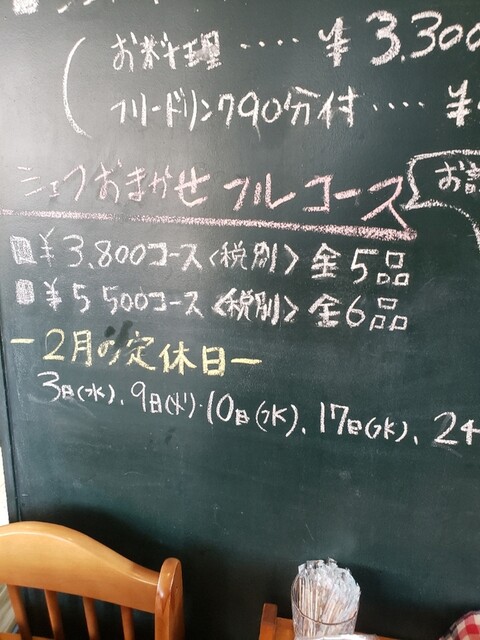 お料理‥‥¥3,300
フリードリンク90分付‥‥¥
シェフおまかせフルコース
お
■¥3,800コース<税別>全5品
■¥5,500コース<税別>全6品
-2月の定休日-
3日(水)、9日(火)・10日(水)、17日(水)、24